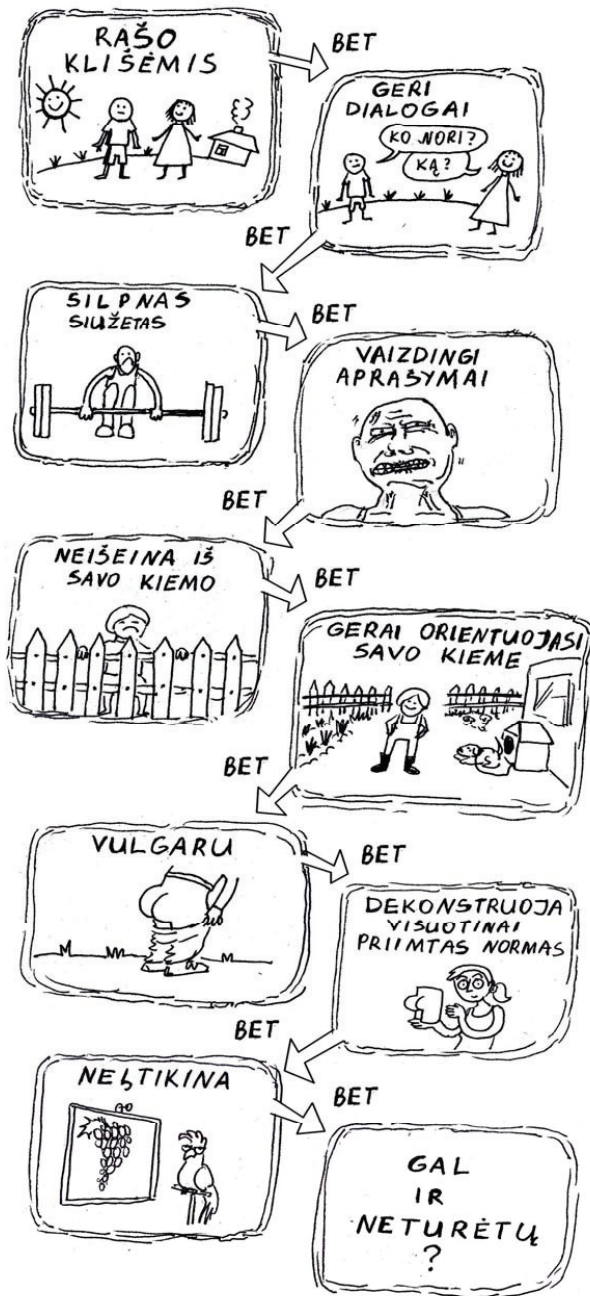 RAŠO
KLIŠĖMIS
BET
GERI
DIALOGAI
KO NORI?
KĄ?
BET
SILPNAS
SIUŽETAS
BET
VAIZDINGI
APRAŠYMAI
BET
NEIŠEINA IŠ
SAVO KIEMO
BET
GERAI ORIENTUOJASI
SAVO KIEME
BET
VULGARU
BET
DEKONSTRUOJA
VISUOTINAI
PRIIMTAS NORMAS
BET
NEĮTIKINA
BET
GAL
IR
NETURĖTŲ
?